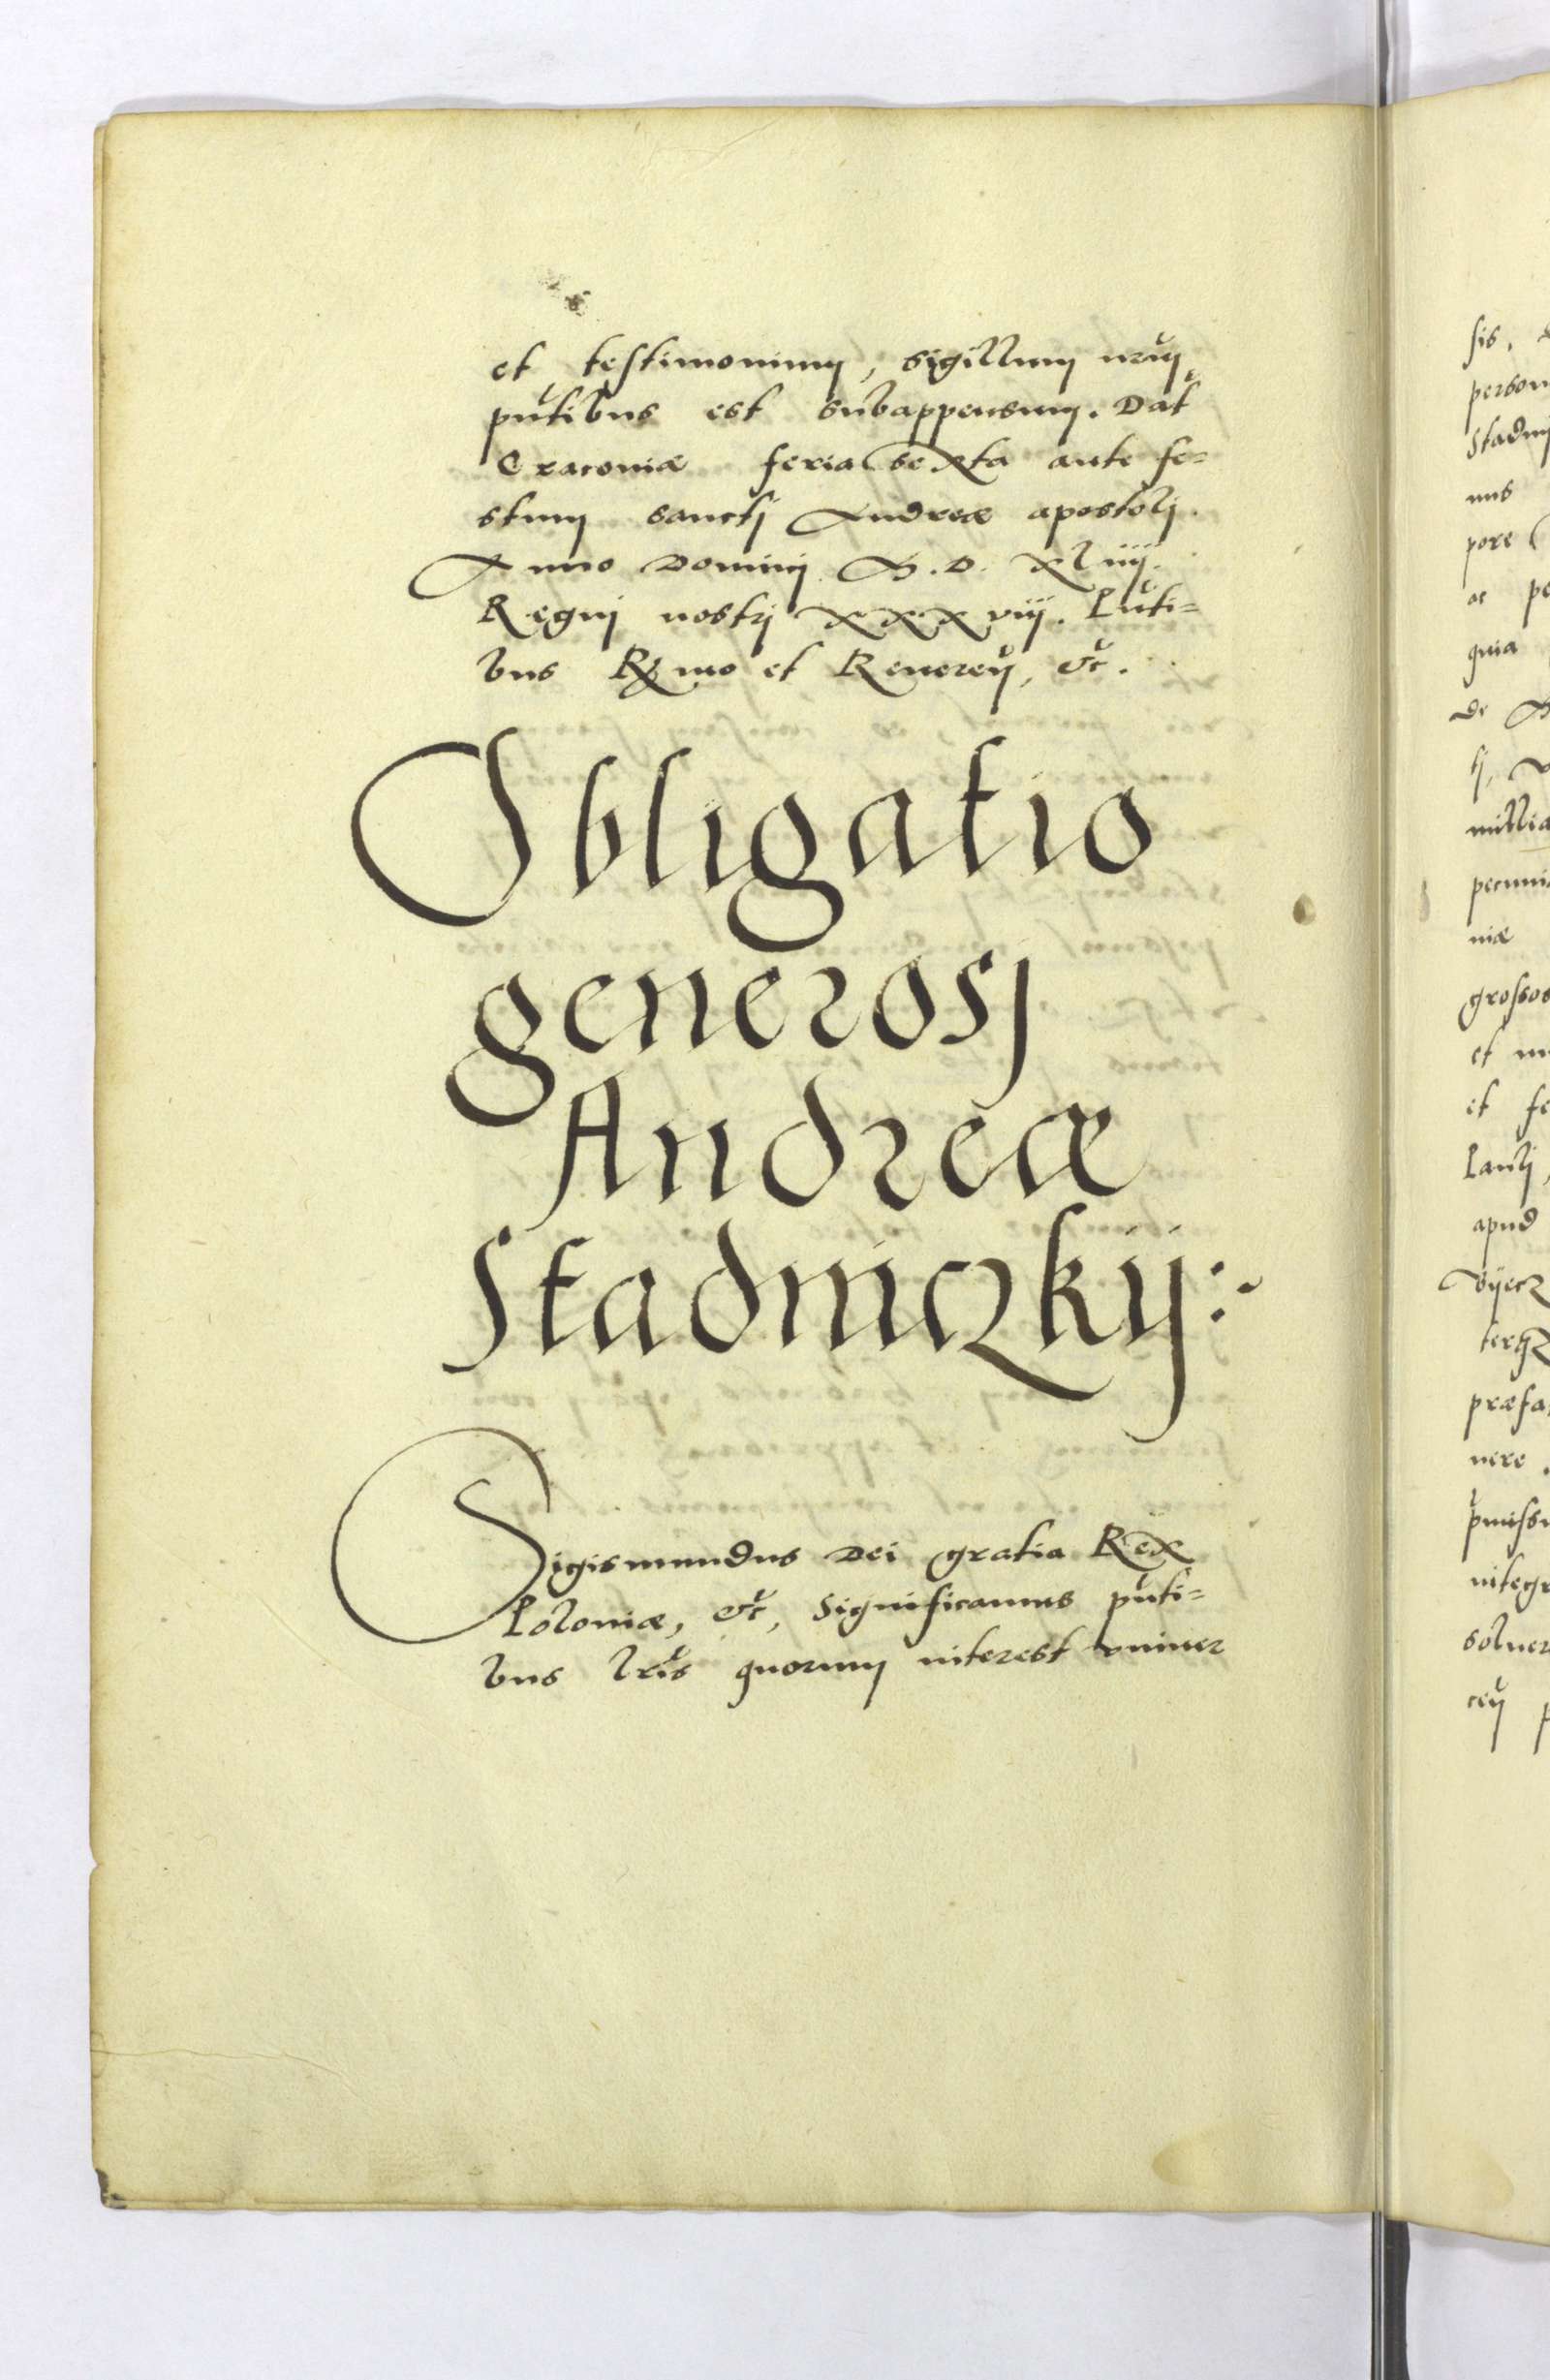 et testimonium, sigillum nrum
pntibus est subappensum. Dat
Cracoviæ feria sexta ante fe=
stum sanctj Andreæ apostolj.
Anno Dominj M.D. xliiij.
Regnj nostrj xxxviij. Pnti=
bus Rzmo et Reueren, etc.
Obligatio
generosj
Andreæ
Stadniczkij:~
Sigismundus Dei gratia Rex
Poloniæ, etc, Significamus pnti=
bus lris quorum interest vniuer
sis,
person
Stadnij
nus
pore
ac pe
quia
de
tj,
millia
pecunia
niæ
grossos
et nu
et fe
Paulj,
apud
Byecz
præfa
nere.
pmiss
integr
soluer